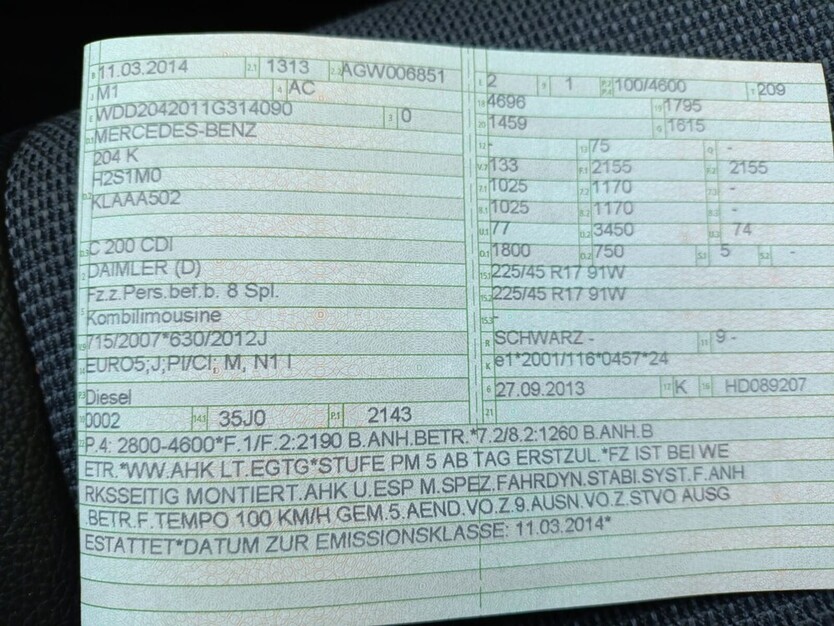 B 11.03.2014 2.1 1313 2.2 AGW006851
J M1 4 AC
E WDD2042011G314090 3 0
D.1 MERCEDES-BENZ
204 K
H2S1M0
KLAAA502
D.3 C 200 CDI
2 DAIMLER (D)
5 Fz.z.Pers.bef.b. 8 Spl.
Kombilimousine
715/2007*630/2012J
14 EURO5;J;PI/CI; M, N1 I
P.3 Diesel
10 0002 14.1 35J0 P.1 2143
L 2 9 1 P.2 P.4 100/4600 T 209
18 4696 19 1795
20 1459 G 1615
12 - 13 75 Q -
V.7 133 F.1 2155 F.2 2155
7.1 1025 7.2 1170 7.3 -
8.1 1025 8.2 1170 8.3 -
U.1 77 U.2 3450 U.3 74
O.1 1800 O.2 750 S.1 5 S.2 -
15.1 225/45 R17 91W
15.2 225/45 R17 91W
15.3 -
R SCHWARZ - 11 9 -
K e1*2001/116*0457*24
6 27.09.2013 17 K 16 HD089207
21
22 P.4: 2800-4600*F.1/F.2:2190 B.ANH.BETR.*7.2/8.2:1260 B.ANH.B
ETR.*WW.AHK LT.EGTG*STUFE PM 5 AB TAG ERSTZUL.*FZ IST BEI WE
RKSSEITIG MONTIERT.AHK U.ESP M.SPEZ.FAHRDYN.STABI.SYST.F.ANH
.BETR.F.TEMPO 100 KM/H GEM.5.AEND.VO.Z.9.AUSN.VO.Z.STVO AUSG
ESTATTET*DATUM ZUR EMISSIONSKLASSE: 11.03.2014*